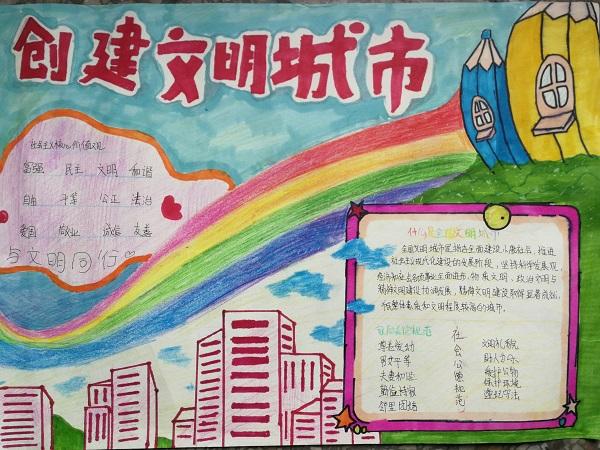 创建文明城市
社会主义核心价值观
富强 民主 文明 和谐
自由 平等 公正 法治
爱国 敬业 诚信 友善
与文明同行
什么是全国文明城市
全国文明城市是指在全面建设小康社会,推进
社会主义现代化建设的发展阶段,坚持科学发展观,
经济和社会各项事业全面进步,物质文明、政治文明与
精神文明建设协调发展,精神文明建设取得显著成就,
市民整体素质和文明程度较高的城市。
家庭美德规范
尊老爱幼
男女平等
夫妻和睦
勤俭持家
邻里团结
社会公德规范
文明礼貌
助人为乐
爱护公物
保护环境
遵纪守法